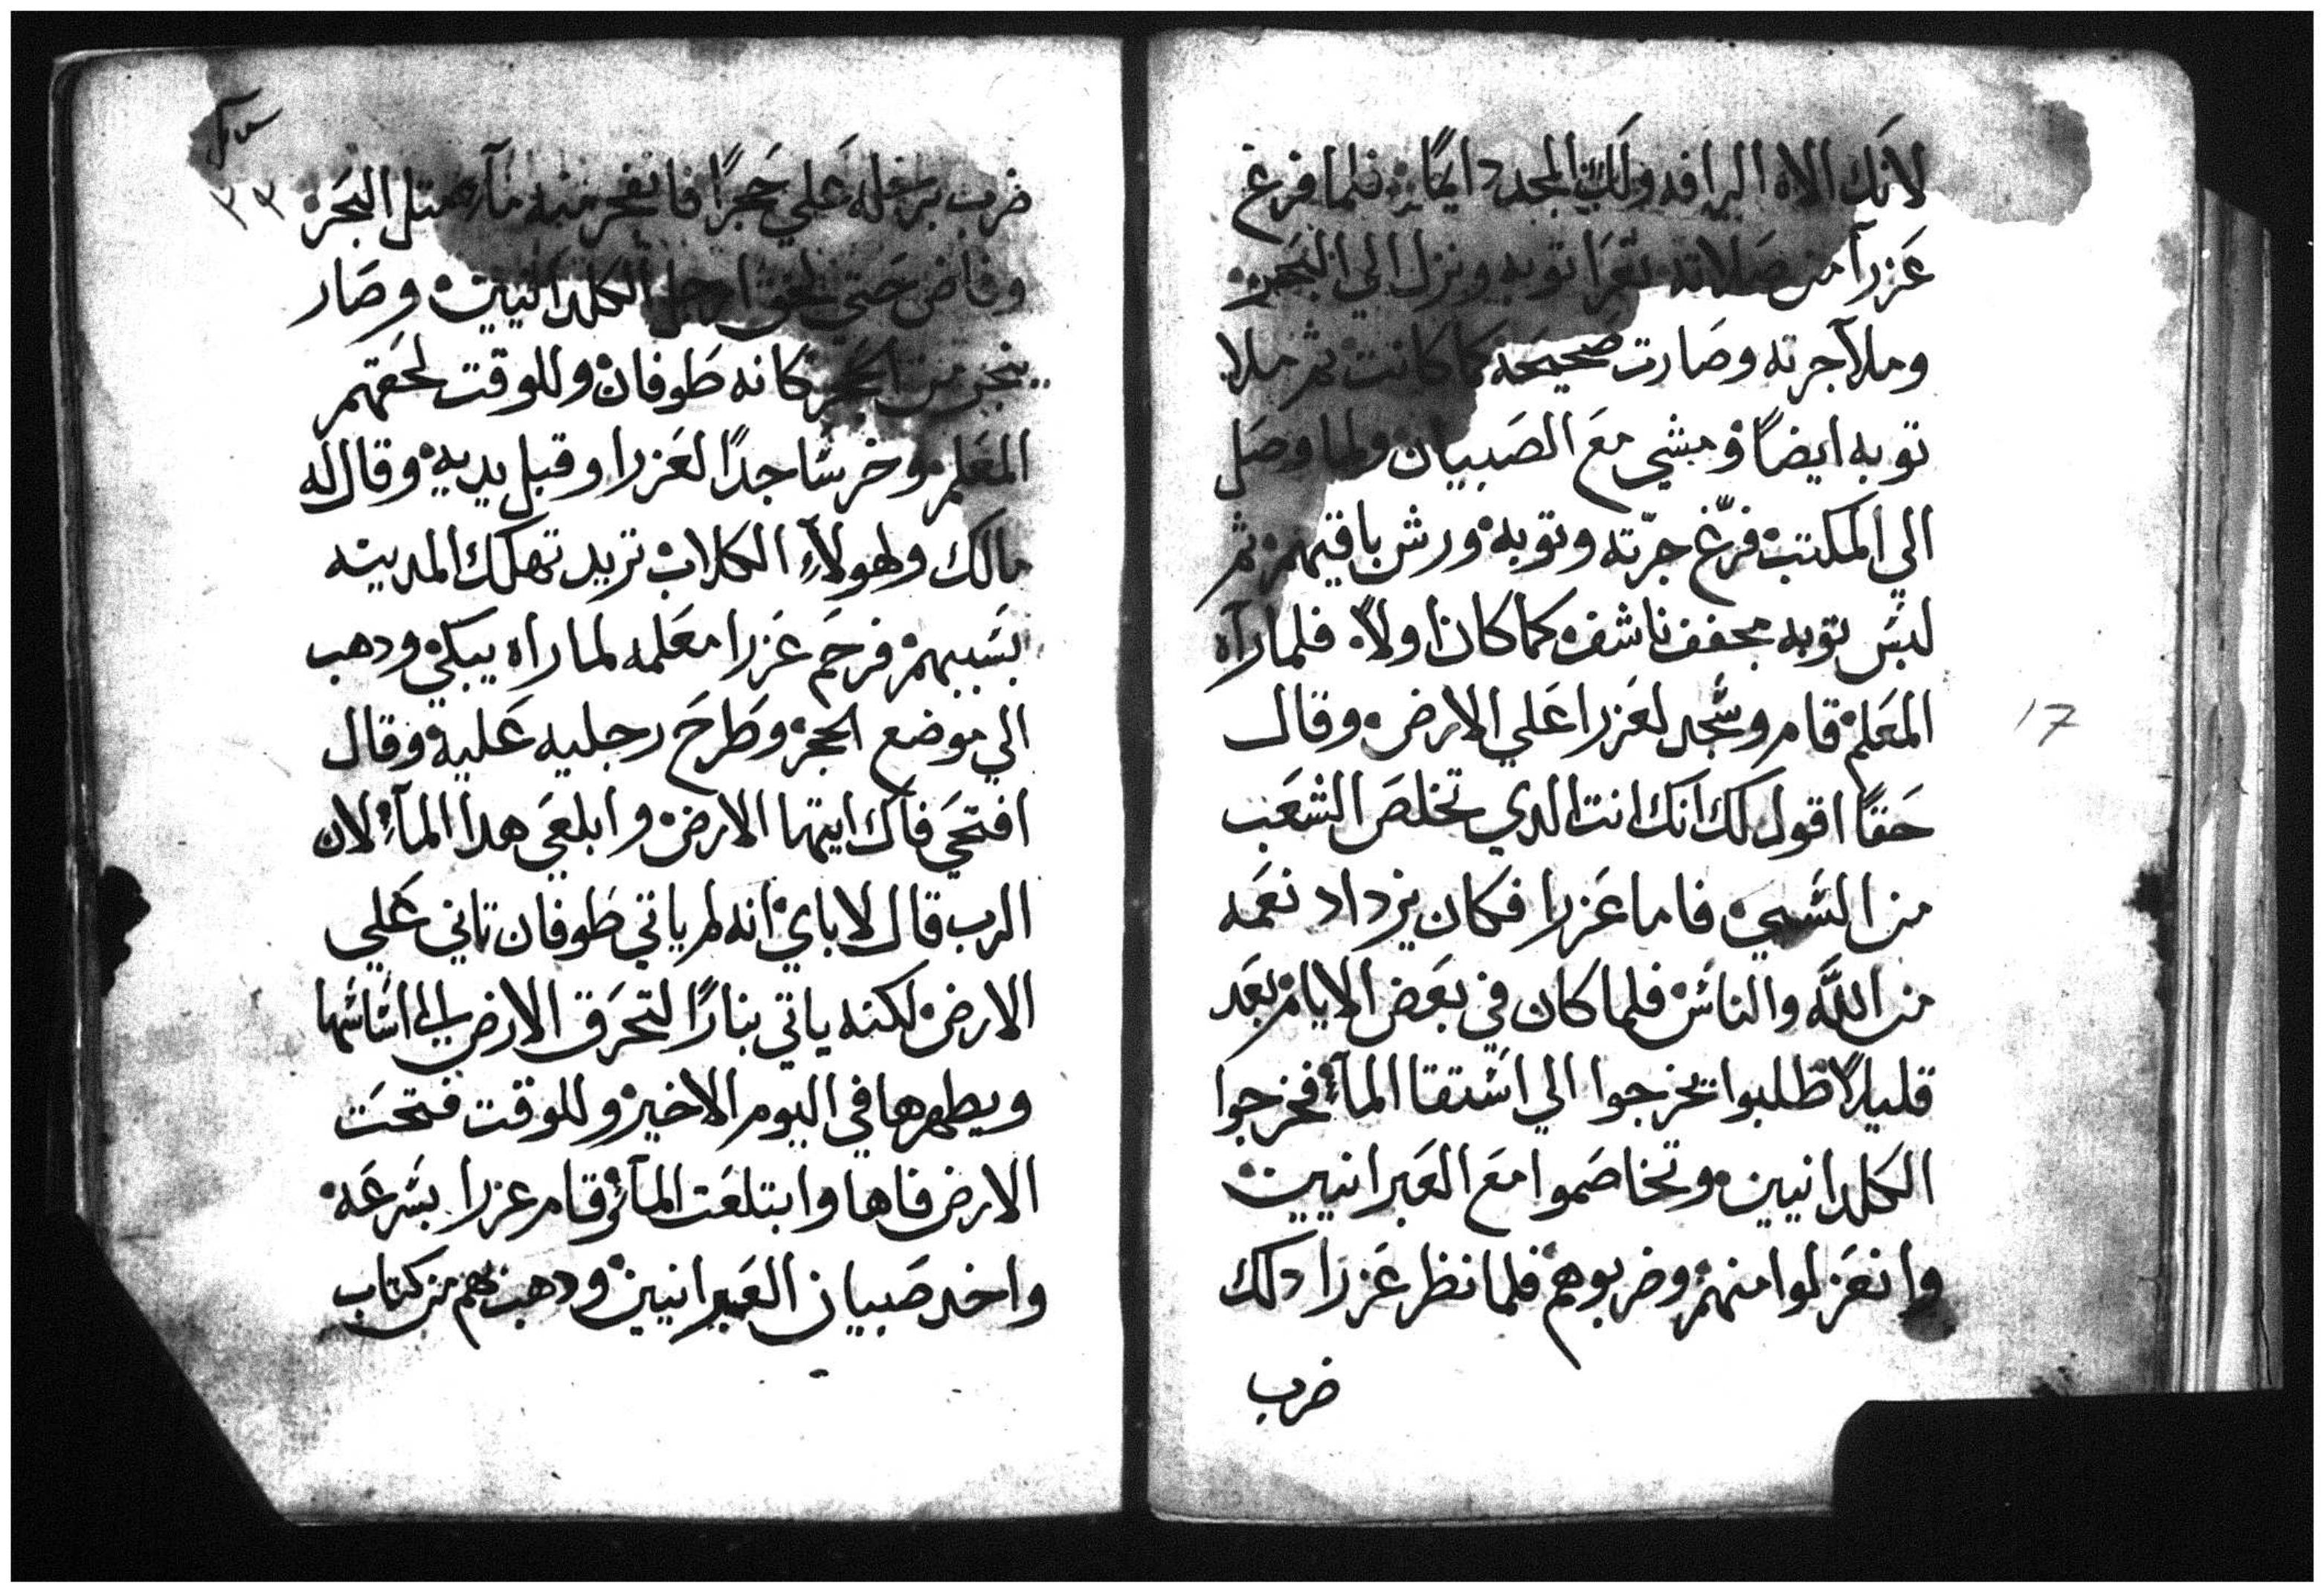 لانك الاه الرافه ولك المجد دايمًا فلما فرغ
عزرا من صلاته تعرا توبه ونزل الي البحر
وملا جرته وصارت صحيحه كما كانت ثم ملا
توبه ايضًا ومشي مع الصبيان ولما وصل
الي المكتب فرّغ جرّته وتوبه ورش باقيتهم ثم
لبس توبه مجفف ناشف كما كان اولاً فلما رآه
المعلم قام وسجد لعزرا علي الارض وقال
حقًا اقول لك انك انت الدي تخلص الشعب
من السبي فاما عزرا فكان يزداد نعمه
من اللّه والناس فلما كان في بعض الايام بعد
قليلاً طلبوا يخرجوا الي استقا المآء فخرجوا
الكلدانيين وتخاصموا مع العبرانيين
وانعزلوا منهم وضربوهم فلما نظر عزرا دلك
ضرب
17
٣٣
ضرب برجله علي حجرًا فانفجر منه مآء متل البحر
وفاض حتي لحق ارجل الكلدانيين وصار
من الحجر كانه طوفان وللوقت لحقتهم
المعلم وخر ساجدًا لعزرا وقبل يديه وقال له
مالك ولهولآء الكلاب تريد تهلك المدينه
بسببهم فرحم عزرا معلمه لما راه يبكي ودهب
الي موضع الحجر وطرح رجليه عليه وقال
افتحي فاك ايتها الارض وابلعي هدا المآء لان
الرب قال لاباي انه لم ياتي طوفان تاني علي
الارض لكنه ياتي بنارًا لتحرق الارض الي اساسها
ويطهرها في اليوم الاخير وللوقت فتحت
الارض فاها وابتلعت المآء وقام عزرا بسرعه
واخد صبيان العبرانيين ودهب بهم من كتاب